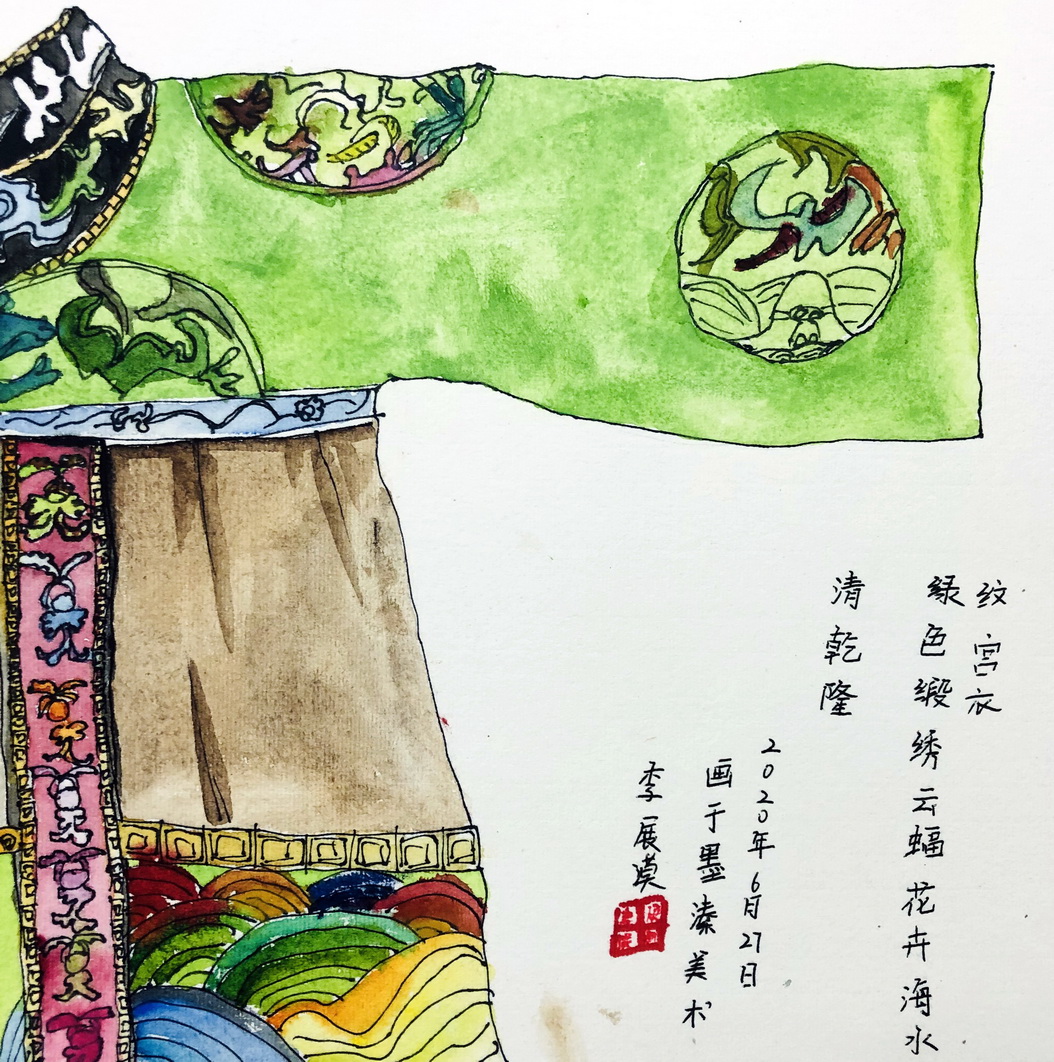 清乾隆
绿色缎绣云蝠花卉海水
纹宫衣
2020年6月27日
画于墨溱美术
李展漠